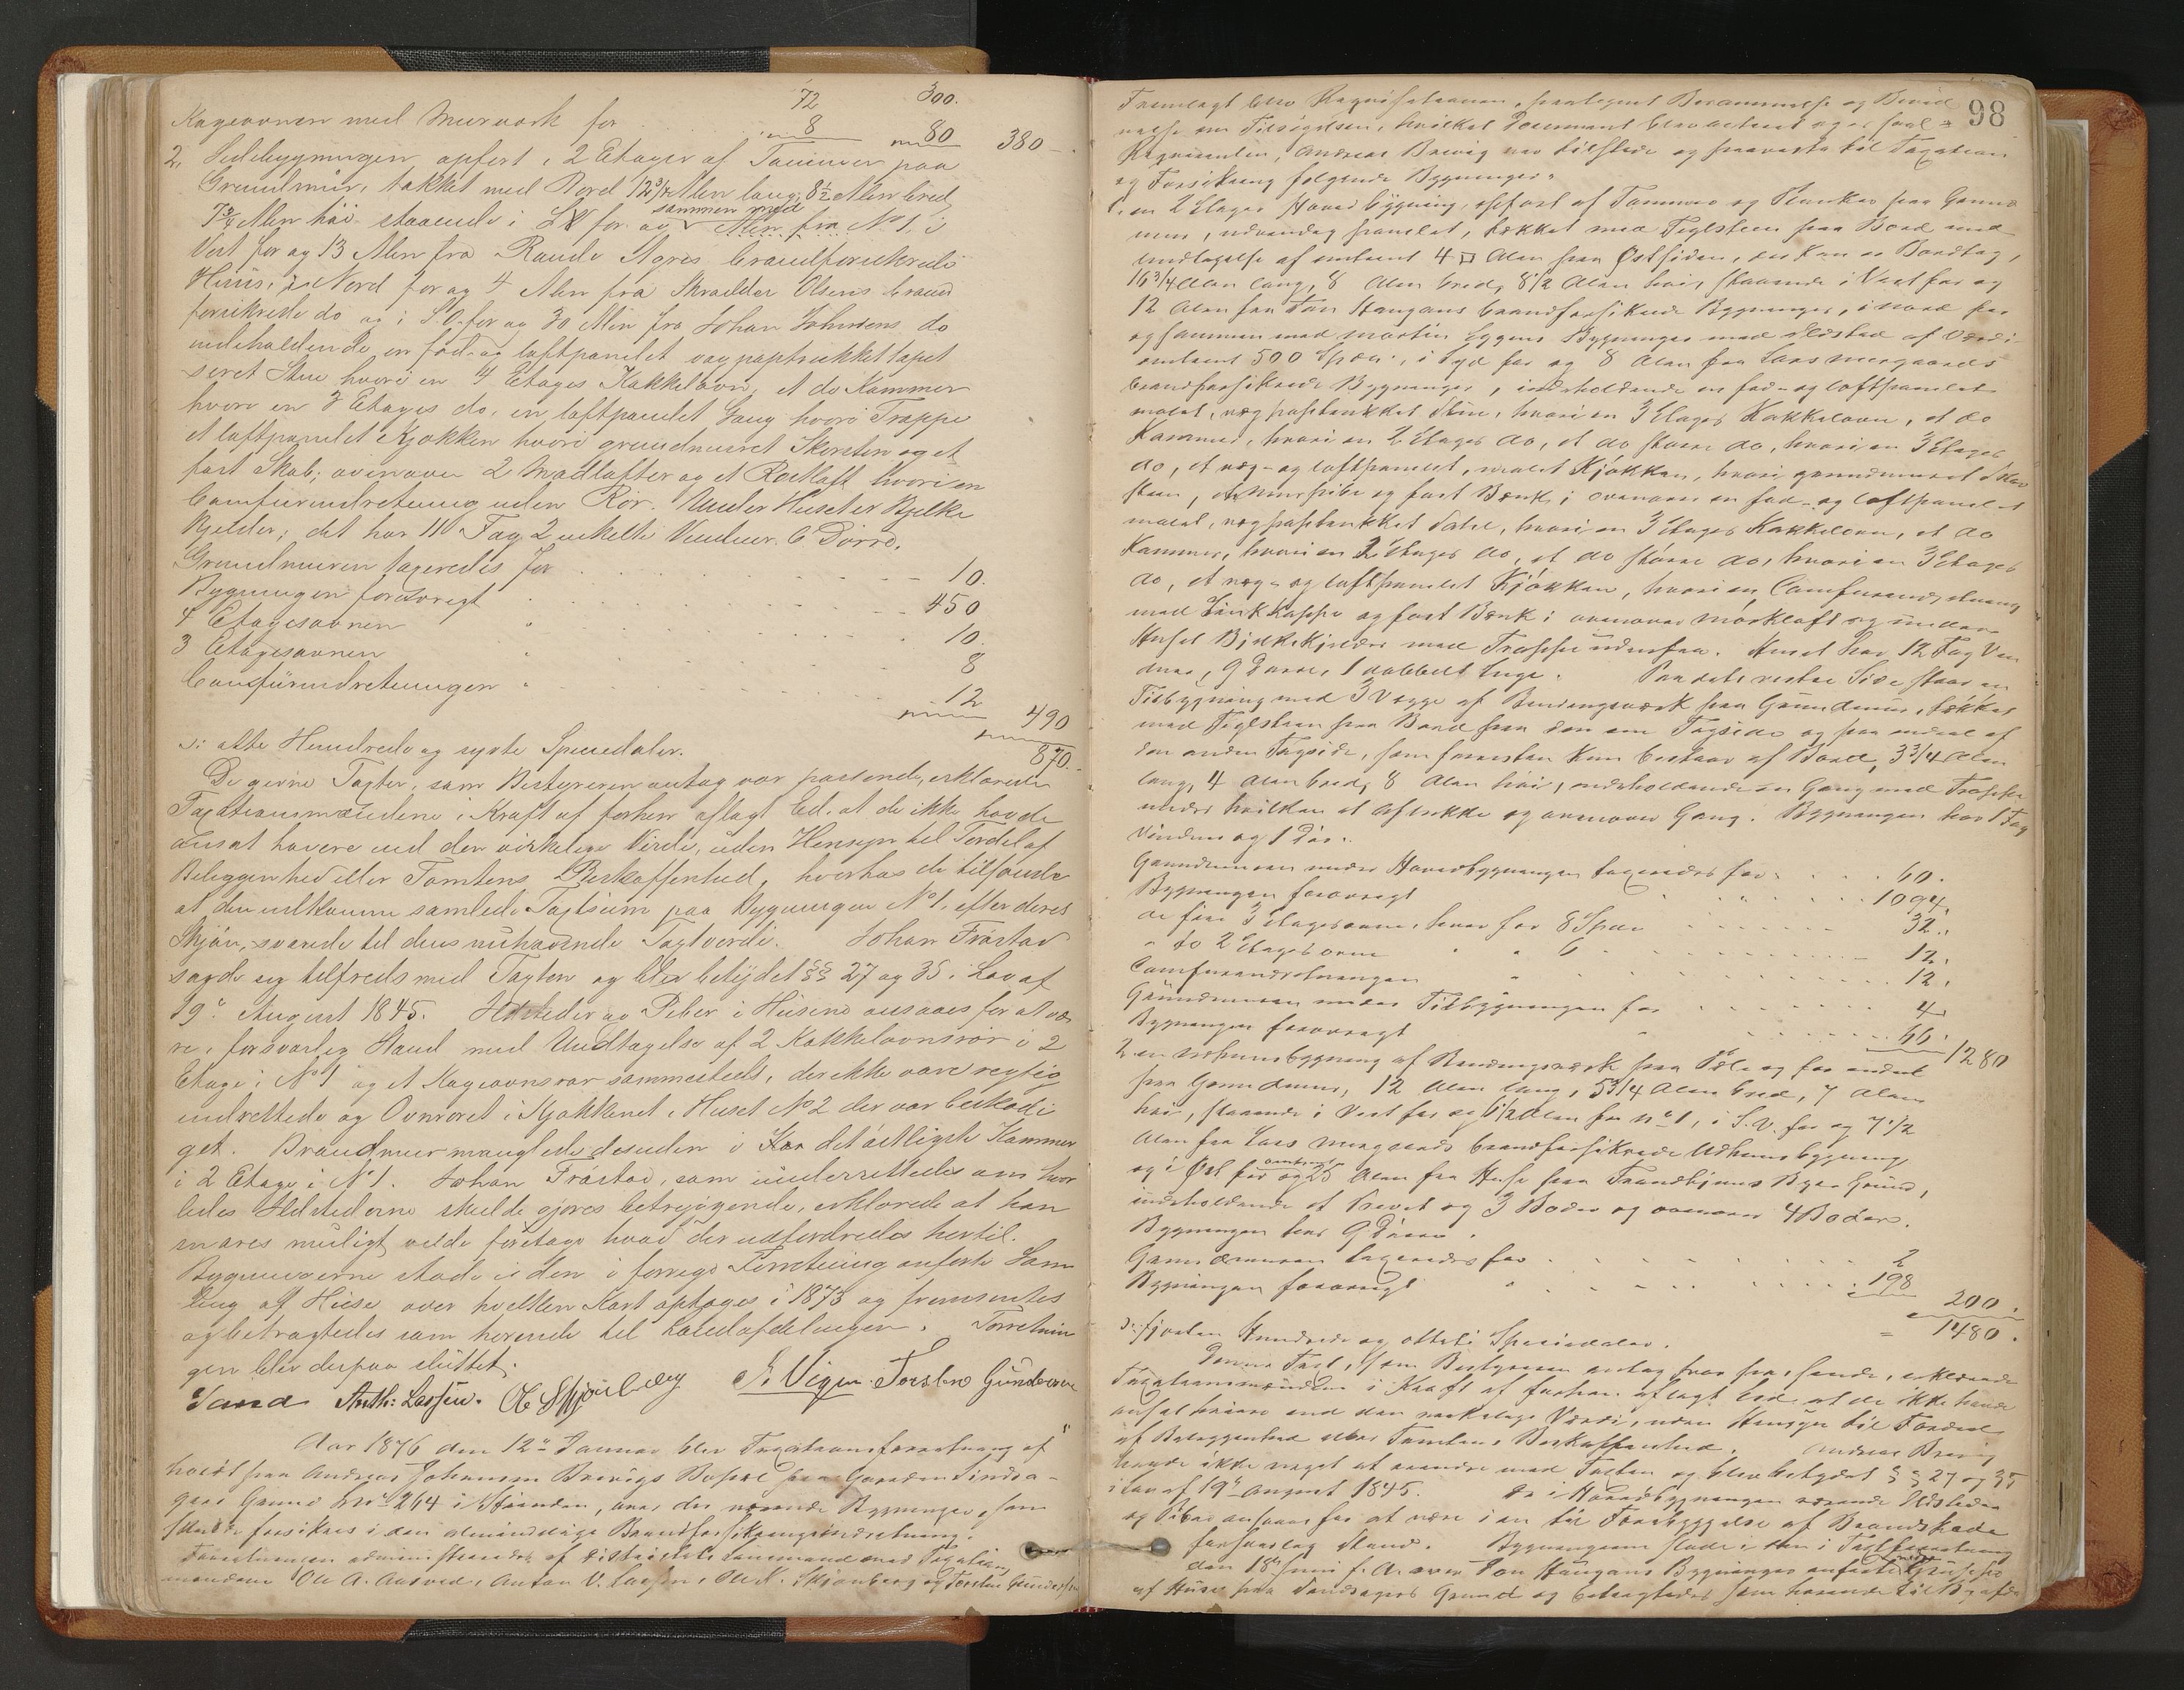 72 300.
Kageovnen med Murværk for 8 80 380
2, Sidebygningen, opført i 2 Etager af Tømmer paa
Grundmur, tækket med Bord 12 3/4 Alen lang, 8 1/2 Alen bred,
7 3/4 Alen høi staaende i for og sammen med Alen fra No 1, i
Vest for og 13 Alen fra Rande Agres brandforsikrede
Huus, i Nord for og 4 Alen fra Skrædder Olsens brand
forsikrede do og i S.O. for og 30 Alen fra Johan Johnsens do
indeholdende en fod- og loftpanelet væg paptrukket tapet
seret Stue hvori en 4 Etages Kakkelovn, et do Kammer
hvori en 3 Etages do, en loftpanelet Gang hvori Trappe
et loftpanelet Kjøkken hvori grundmuret Skorsten og et
fast Skab; ovenover 2 Mørklofter og et Rødloft hvori en
Comfurindretning uden Rør. Under Huset er Bjelke
Kjelder; det har 11 Fag 2 enkelte Vinduer 6 Dørre.
Grundmuren taxeredes for 10.
Bygningen forøvrigt 450
4 Etagesovnen " 10.
3 Etagesovnen " 8
Comfurindretningen " 12 490
870.
ɔ: otte Hundrede og sytti Speciedaler.
De givne Taxter, som Bestyreren antog var passende, erklærede
Taxationsmændene i Kraft af forhen aflagt Ed, at de ikke havde
ansat høiere end den virkelige Værdi, uden Hensyn til Fordel af
Beliggenhed eller Tomtens Beskaffenhed, hvorhos de tilføiede
at den udkomne samlede Taxtsum paa Bygningen No 1, efter deres
Skjøn, svarede til dens nuhavende Taxtværdi. Johan Frøstad
sagde sig tilfreds med Taxten og blev betydet §§ 27 og 35 i Lov af
19de August 1845. Ildsteder og Piber i Husene ansaaes for at væ
re i forsvarlig Stand med Undtagelse af 2 Kakkelovnsrør i 2
Etage i No 1 og et Kageovnsrør sammesteds, der ikke vare rigtig
indrettede og Ovnrøret i Kjøkkenet i Huset No 2 der var beskadi
get. Brandmur manglede desuden i det østligste Kammer
i 2 Etage i No 1. Johan Frøstad, som underrettedes om hvor
ledes Ildstederne skulde gjøres betryggende, erklærede at han
snarest muligt vilde foretage hvad der udfordredes hertil.
Bygningerne stode i den i forrige Forretning anførte Sam
ling af Huse over hvilken Kart optoges i 1873 og fremsendtes
og betragtedes som hørende til Landafdelingen. Forretnin
gen blev derpaa sluttet.
Sand Anth: Lassen. O Skjønberg S. Vigen. Torsten Gundersen
Aar 1876 den 12te Januar blev Taxationsforretning af
holdt paa Andreas Johansen Brevigs Bopæl paa Gaarden Sindsa-
gers Grund Lno 264 i Strinden, over der værende Bygninger, som
skulde forsikres i den almindelige Brandforsikringsindretning.
Forretningen administreredes af Distriktets Lensmand med Taxations
mændene Ole A. Aasved, Anton V. Lassen, Ole K. Skjønberg og Torsten Gundersen
98
Fremlagt blev Reqvisitionen, paategnet Berammelse og Bevid
nelse om Tilsigelsen, hvilket Document blev
Reqvirenten, Andreas Brevig var tilstede og paaviste til Taxation
og Forsikring følgende Bygninger:
1. en 2 Etages Hovedbygning, opført af Tømmer og Planker paa Grund
mur, udvendig panelet, tækket med Teglsteen paa Bord med
Undtagelse af omtrent 4 □ Alen paa Østsiden, der kun er Bordtag,
16 3/4 Alen lang, 8 Alen bred, 8 1/2 Alen høi, staaende i Vest for og
12 Alen fra Ton Haugans brandforsikrede Bygninger, i Nord for
og sammen med Martin Eggens Bygninger med Ildsted af Værdi
omtrent 500 Spdlr., i Syd for og 8 Alen fra Lars Moegaards
brandforsikrede Bygninger, indeholdende en fod- og loftpanelet
malet, væg paptrukket Stue, hvori en 3 Etages Kakkelovn, et do
Kammer, hvori en 2 Etages do, et do større do, hvori en 3 Etages
do, et væg- og loftpanelet, malet Kjøkken, hvori grundmuret Skor
sten, og fast Bænk; ovenover en fod- og loftpanelet
malet, væg paptrukket Sahl, hvori en 3 Etages Kakkelovn, et do
Kammer, hvori en 2 Etages do, et do større do, hvori en 3 Etages
do, et væg- og loftpanelet Kjøkken, hvori en Comfurindretning
med Zinkkappe og fast Bænk; ovenover mørkloft og under
Huset Bjelkekjelder med Trappe udenfra. Huset har 12 Fag Vin
duer, 9 Dørre, 1 dobbelt Luge. Paa dets vestre Side staar en
Tilbygning med 3 Vægge af Bindingsværk paa Grundmur, tækket
med Teglsteen paa Bord paa den ene Tagside og paa endeel af
den anden Tagside, som forresten kun bestaar af Bord, 3 3/4 Alen
lang, 4 Alen bred, 8 Alen høi, indeholdende en Gang med Trappe
under hvilken et Aflukke og ovenover Gang. Bygningen har 1 Fag
Vinduer og 1 Dør.
Grundmuren under Hovedbygningen taxeredes for 60.
Bygningen forøvrigt " 1094.
de fire 3 Etagesovne, hver for 8 Spdlr 32.
" to 2 Etagesovne " " 6 12.
Comfurindretningen " 12.
Grundmuren under Tilbygningen for 4
Bygningen forøvrigt " 66. 1280
2. en Udhuusbygning af Bindingsværk paa Pæle og for endeel
paa Grundmur, 12 Alen lang, 5 3/4 Alen bred, 7 Alen
høi, staaende i Vest for og 6 1/2 Alen fra No 1, i S.V. for og 7 1/2
Alen fra Lars Moegaards brandforsikrede Udhuusbygning
og i Øst for og omtrent 25 Alen fra Huse paa Trondhjems Byes Grund,
indeholdende et Privet og 3 Boder og ovenover 4 Boder.
Bygningen har 9 Dørre.
Grundmuren taxeredes for 2
Bygningen forøvrigt " 198
200.
ɔ: fjorten Hundrede og otteti Speciedaler. = 1480.
Denne Taxt, som Bestyreren antog for passende, erklærede
Taxationsmændene i Kraft af forhen aflagt Eed, at de ikke havde
ansat høiere end den virkelige Værdi, uden Hensyn til Fordeel
af Beliggenhed eller Tomtens Beskaffenhed. Andreas Brevig
havde ikke noget at erindre mod Taxten og blev betydet §§ 27 og 35
i Lov af 19de August 1845. De i Hovedbygningen værende Ildsteder
og Piber ansaaes for at være i en til Forebyggelse af Brandskade
forsvarlig Stand. Bygningerne stode i den i Taxtforretning
den 18de Juni f. A. over Ton Haugans Bygninger anførte Gruppe
af Huse paa Sindsagers Grund og betragtedes som hørende til Byafde